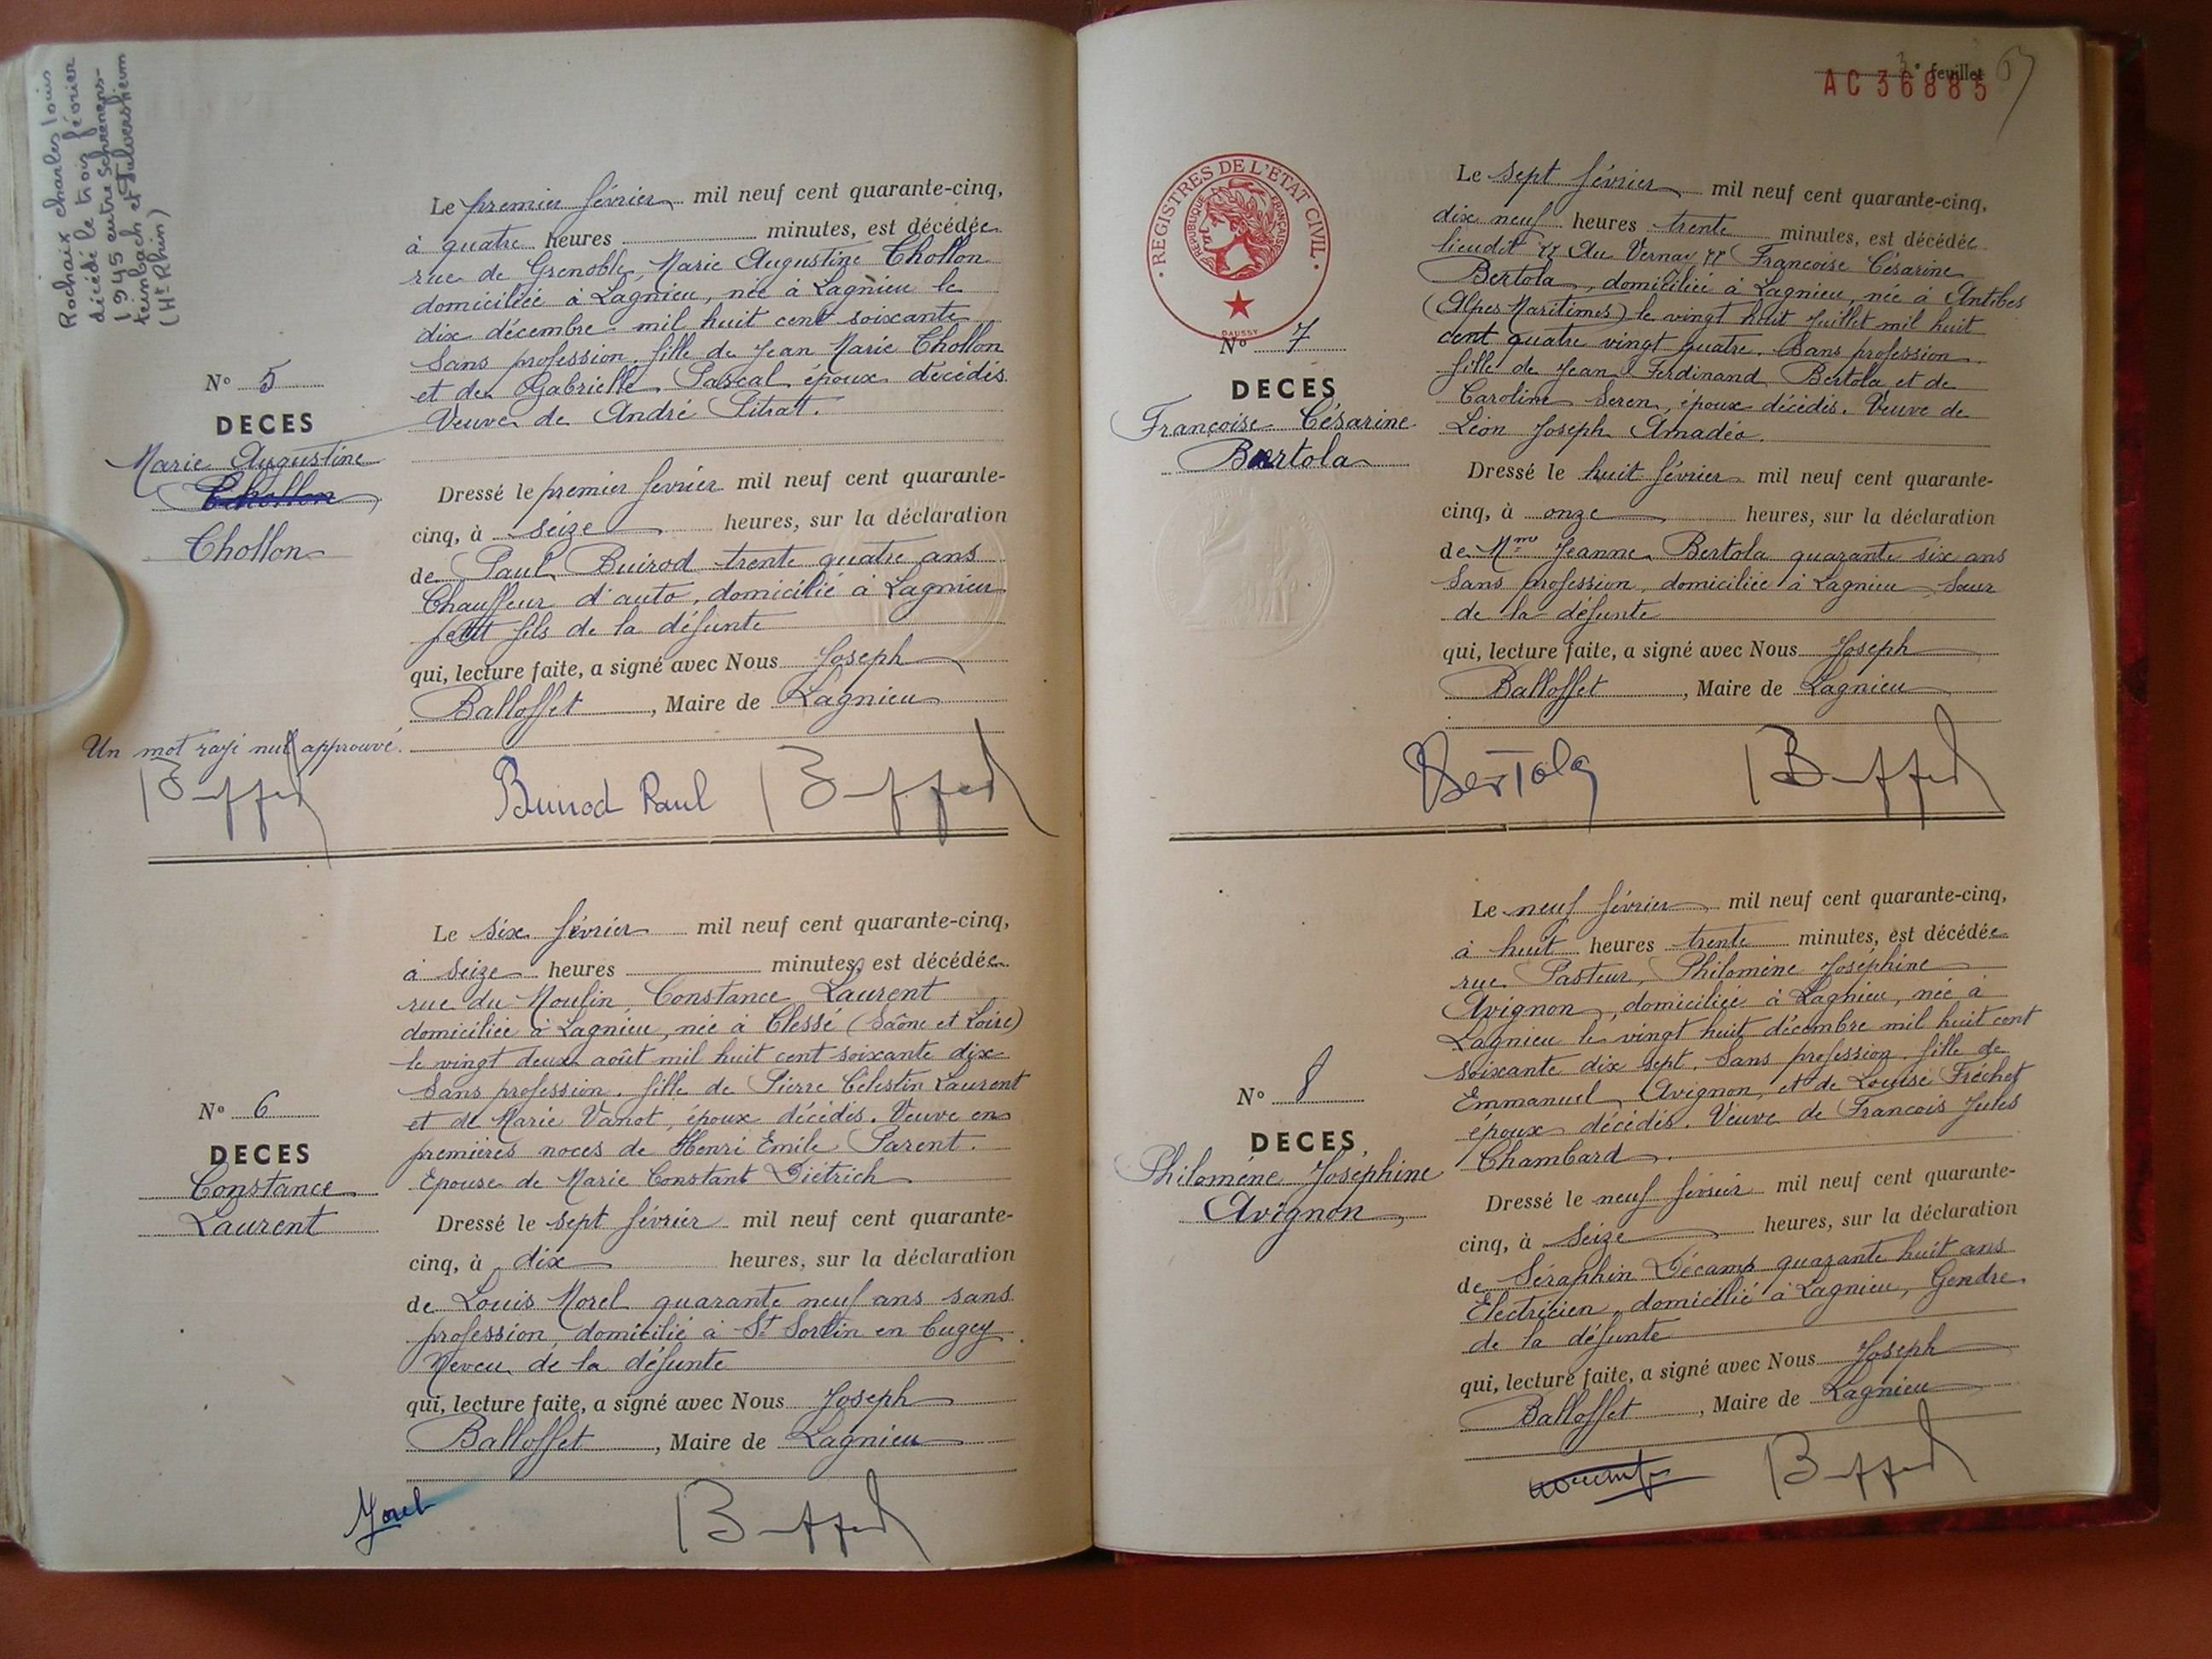 Rochaix Charles Louis
décédé le trois février
1945 entre Schrenens-
teinbach et
(Ht Rhin)
N° 5
DECES
Marie Augustine
Chollon
Chollon
Un mot rayé nul approuvé.
Le premier février mil neuf cent quarante-cinq,
à quatre heures minutes, est décédée
rue de Grenoble, Marie Augustine Chollon
domiciliée à Lagnieu, née à Lagnieu le
dix décembre mil huit cent soixante
Sans profession. fille de Jean Marie Chollon
et de Gabrielle Pascal époux décédés.
Veuve de André Litratt.
Dressé le premier février mil neuf cent quarante-
cinq, à seize heures, sur la déclaration
de Paul Buirod trente quatre ans
Chauffeur d'auto, domicilié à Lagnieu
petit fils de la défunte
qui, lecture faite, a signé avec Nous Joseph
Balloffet, Maire de Lagnieu
Buirod Paul
N° 6
DECES
Constance
Laurent
Le six février mil neuf cent quarante-cinq,
à seize heures minutes, est décédée
rue du Moulin, Constance Laurent
domiciliée à Lagnieu, née à Clessé (Saône et Loire)
le vingt deux août mil huit cent soixante dix
Sans profession. fille de Pierre Célestin Laurent
et de Marie Vanot, époux décédés. Veuve en
premières noces de Henri Emile Parent.
Epouse de Marie Constant Dietrich
Dressé le sept février mil neuf cent quarante-
cinq, à dix heures, sur la déclaration
de Louis Morel quarante neuf ans sans
profession, domicilié à St Sorlin en Bugey
Neveu de la défunte
qui, lecture faite, a signé avec Nous Joseph
Balloffet, Maire de Lagnieu
Morel
3e feuillet 67
AC 36885
REGISTRES DE L'ETAT CIVIL
REPUBLIQUE FRANÇAISE
DAUSSY
N° 7
DECES
Françoise Césarine
Bertola
Le sept février mil neuf cent quarante-cinq,
dix neuf heures trente minutes, est décédée
lieudit "Au Vernay" Françoise Césarine
Bertola, domiciliée à Lagnieu, née à Antibes
(Alpes Maritimes) le vingt huit Juillet mil huit
cent quatre vingt quatre. Sans profession.
fille de Jean Ferdinand Bertola et de
Caroline Seren, époux décédés. Veuve de
Léon Joseph Amadéo.
Dressé le huit février mil neuf cent quarante-
cinq, à onze heures, sur la déclaration
de Mme Jeanne Bertola quarante six ans
Sans profession, domiciliée à Lagnieu Sœur
de la défunte
qui, lecture faite, a signé avec Nous Joseph
Balloffet, Maire de Lagnieu
Bertola
N° 8
DECES
Philomène Joséphine
Avignon
Le neuf février mil neuf cent quarante-cinq,
à huit heures trente minutes, est décédée
rue Pasteur, Philomène Joséphine
Avignon, domiciliée à Lagnieu, née à
Lagnieu le vingt huit décembre mil huit cent
soixante dix sept. Sans profession. fille de
Emmanuel Avignon, et de Louise Fréchet
époux décédés. Veuve de François Jules
Chambard.
Dressé le neuf février mil neuf cent quarante-
cinq, à seize heures, sur la déclaration
de Séraphin Décamp quarante huit ans
Electricien, domicilié à Lagnieu, Gendre
de la défunte
qui, lecture faite, a signé avec Nous Joseph
Balloffet, Maire de Lagnieu